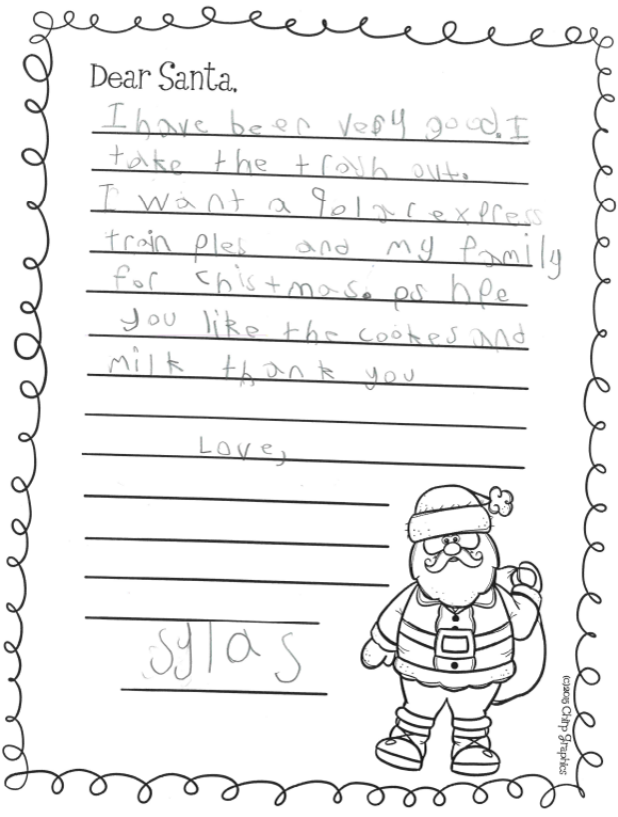 Dear Santa,
I have been very good. I
take the trash out.
I want a Polar express
train ples and my family
for chistmas. ps hpe
you like the cookes and
milk thank you
Love,
sylas
(c)2015 Chirp Graphics